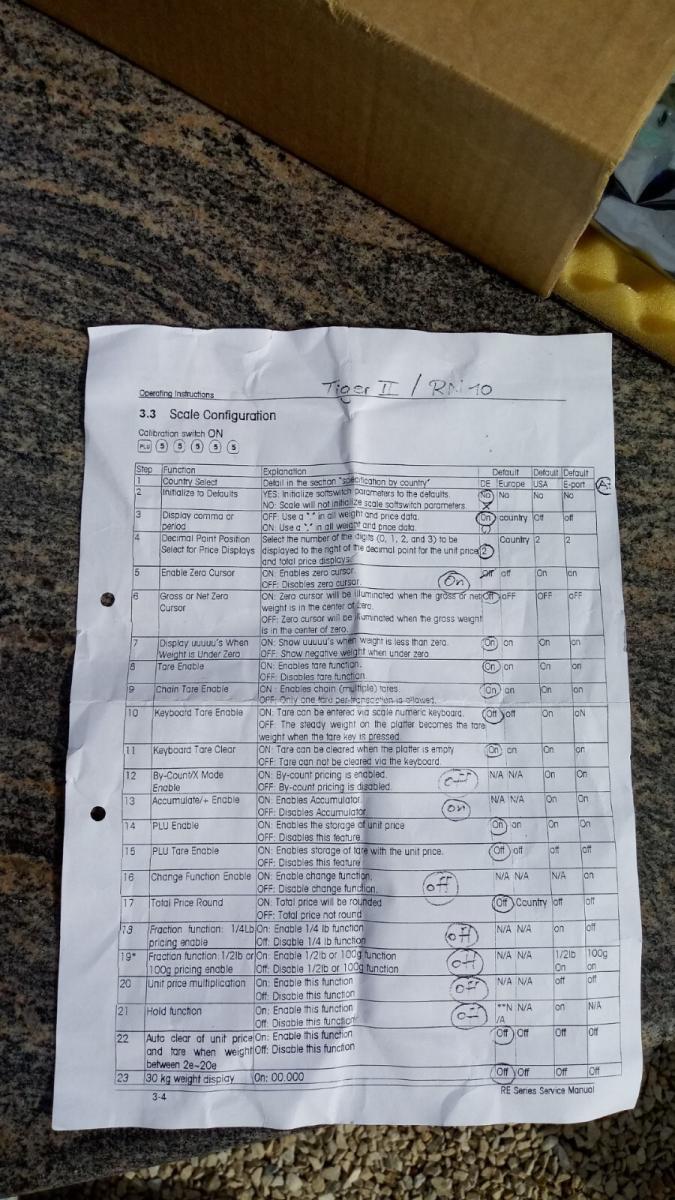 Tiger II / RN 10
Operating Instructions
3.3 Scale Configuration
Calibration switch ON
PLU 5 5 5 5 5
Step Function Explanation Default Default Default
1 Country Select Detail in the section "specification by country" DE Europe USA E-port
2 Initialize to Defaults YES: Initialize softswitch parameters to the defaults. No No No No
NO: Scale will not initialize scale softswitch parameters.
3 Display comma or OFF: Use a "." in all weight and price data. On country Off off
period ON: Use a "," in all weight and price data.
4 Decimal Point Position Select the number of the digits (0, 1, 2, and 3) to be Country 2 2
Select for Price Displays displayed to the right of the decimal point for the unit price 2
and total price displays.
5 Enable Zero Cursor ON: Enables zero cursor. On Off off On on
OFF: Disables zero cursor.
6 Gross or Net Zero ON: Zero cursor will be illuminated when the gross or net Off oFF OFF oFF
Cursor weight is in the center of zero.
OFF: Zero cursor will be illuminated when the gross weight
is in the center of zero.
7 Display uuuuu's When ON: Show uuuuu's when weight is less than zero. On on On on
Weight is Under Zero OFF: Show negative weight when under zero
8 Tare Enable ON: Enables tare function. On on On on
OFF: Disables tare function.
9 Chain Tare Enable ON : Enables chain (multiple) tares. On on On on
OFF: Only one tare per transaction is allowed.
10 Keyboard Tare Enable ON: Tare can be entered via scale numeric keyboard. Off off On oN
OFF: The steady weight on the platter becomes the tare
weight when the tare key is pressed.
11 Keyboard Tare Clear ON: Tare can be cleared when the platter is empty On on On on
OFF: Tare can not be cleared via the keyboard.
12 By-Count/X Mode ON: By-count pricing is enabled. off N/A N/A On On
Enable OFF: By-count pricing is disabled.
13 Accumulate/+ Enable ON: Enables Accumulator. on N/A N/A On On
OFF: Disables Accumulator.
14 PLU Enable ON: Enables the storage of unit price On on On On
OFF: Disables this feature.
15 PLU Tare Enable ON: Enables storage of tare with the unit price. Off off off off
OFF: Disables this feature
16 Change Function Enable ON: Enable change function. off N/A N/A N/A on
OFF: Disable change function.
17 Total Price Round ON: Total price will be rounded Off Country off off
OFF: Total price not round
18 Fraction function: 1/4Lb On: Enable 1/4 lb function off N/A N/A on off
pricing enable Off: Disable 1/4 lb function
19* Fraction function: 1/2lb or On: Enable 1/2lb or 100g function off N/A N/A 1/2lb 100g
100g pricing enable Off: Disable 1/2lb or 100g function On on
20 Unit price multiplication On: Enable this function off N/A N/A off off
Off: Disable this function
21 Hold function On: Enable this function off **N N/A on N/A
Off: Disable this function /A
22 Auto clear of unit price On: Enable this function Off Off Off Off
and tare when weight Off: Disable this function
between 2e~20e
23 30 kg weight display On: 00.000 Off Off Off Off
3-4 RE Series Service Manual